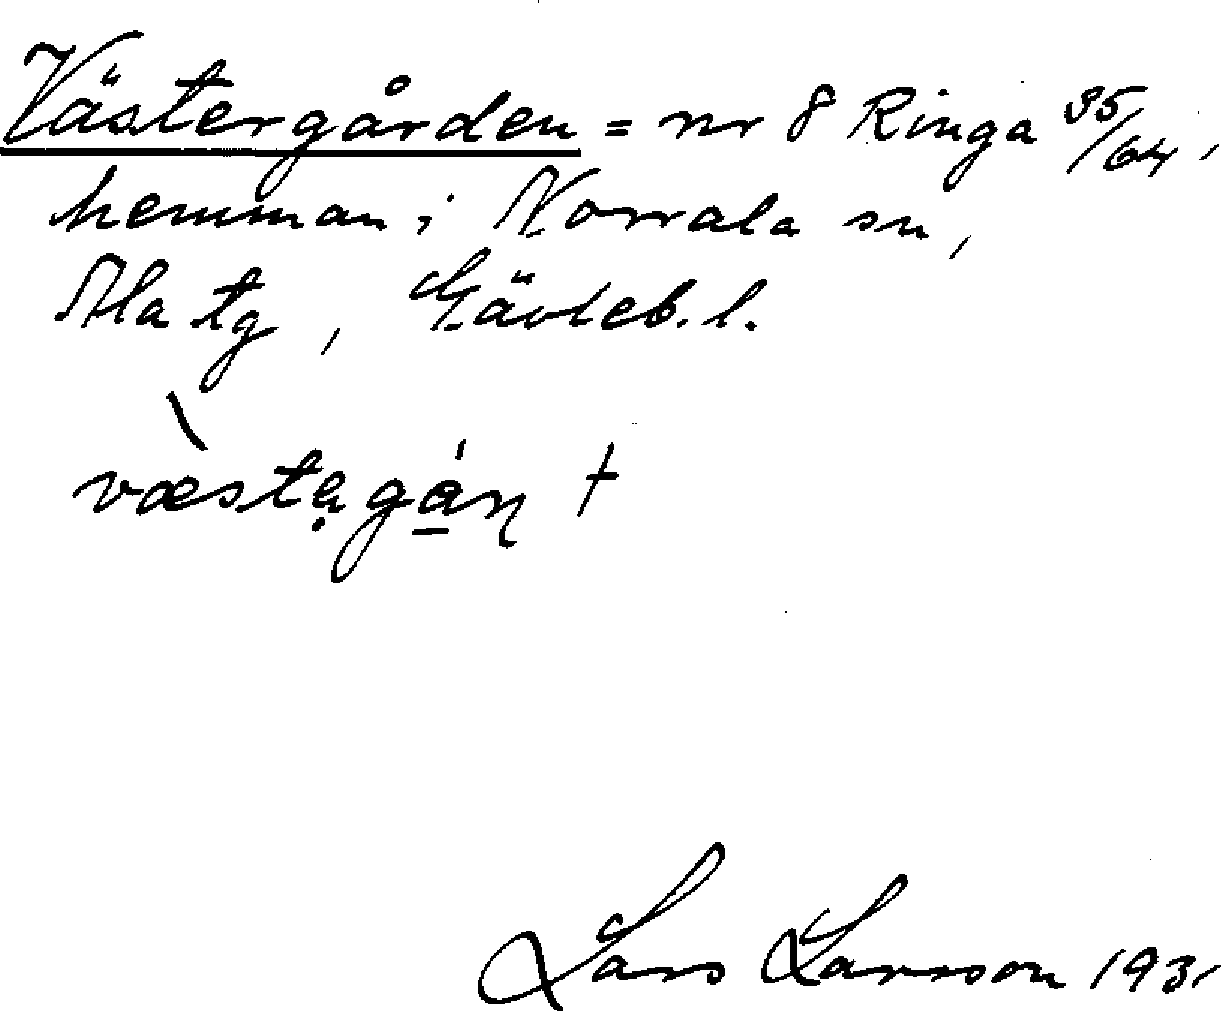 Västergården = nr 8 Ringa 35/64,
hemman i Norrala sn,
Ala tg, Gävleb. l.
væ̀stəgán +
Lars Larsson 1931